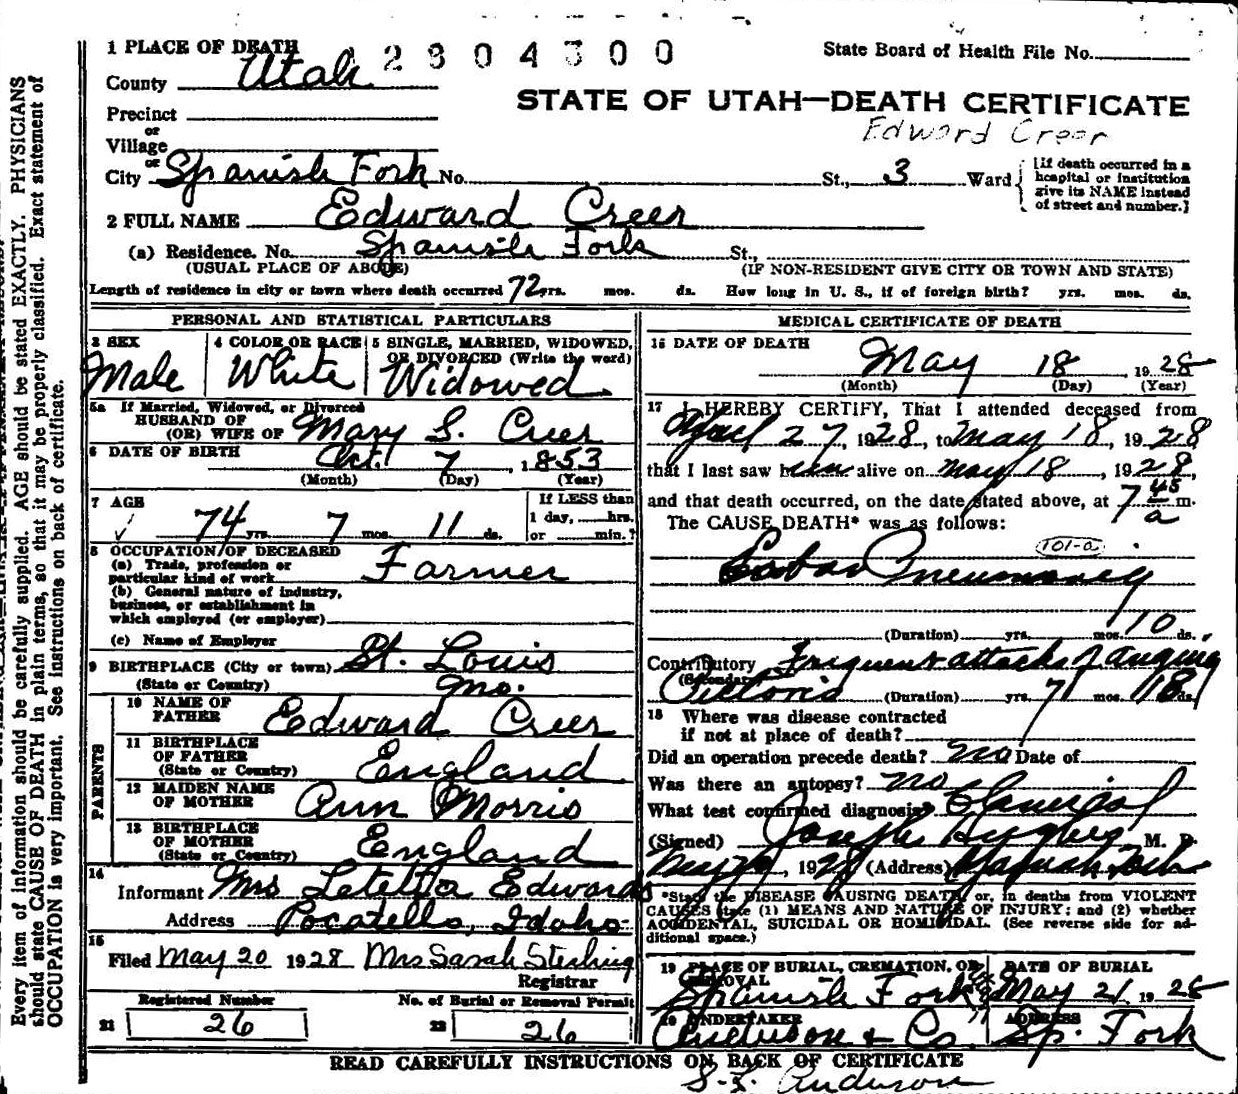 1 PLACE OF DEATH
2 9 0 4 3 0 0
State Board of Health File No.
County Utah
STATE OF UTAH—DEATH CERTIFICATE
Precinct
Edward Creer
or
Village
or
City Spanish Fork No. St., 3 Ward
[If death occurred in a
hospital or institution
give its NAME instead
of street and number.]
2 FULL NAME Edward Creer
(a) Residence. No. Spanish Fork St.,
(USUAL PLACE OF ABODE) (IF NON-RESIDENT GIVE CITY OR TOWN AND STATE)
Length of residence in city or town where death occurred 72 yrs. mos. ds. How long in U. S., if of foreign birth? yrs. mos. ds.
PERSONAL AND STATISTICAL PARTICULARS
3 SEX
Male
4 COLOR OR RACE
White
5 SINGLE, MARRIED, WIDOWED,
OR DIVORCED (Write the word)
Widowed
5a If Married, Widowed, or Divorced
HUSBAND OF
(OR) WIFE OF Mary S. Creer
6 DATE OF BIRTH Oct. 7, 1853
(Month) (Day) (Year)
7 AGE
74 yrs. 7 mos. 11 ds.
If LESS than
1 day, hrs.
or min.?
8 OCCUPATION OF DECEASED
(a) Trade, profession or
particular kind of work Farmer
(b) General nature of industry,
business, or establishment in
which employed (or employer)
(c) Name of Employer
9 BIRTHPLACE (City or town) St. Louis
(State or Country) Mo.
PARENTS
10 NAME OF
FATHER Edward Creer
11 BIRTHPLACE
OF FATHER
(State or Country) England
12 MAIDEN NAME
OF MOTHER Ann Morris
13 BIRTHPLACE
OF MOTHER
(State or Country) England
14
Informant Mrs Letetta Edwards
Address Pocatello, Idaho
15
Filed May 20 1928 Mrs Sarah Sterling
Registrar
Registered Number
21 26
No. of Burial or Removal Permit
22 26
MEDICAL CERTIFICATE OF DEATH
16 DATE OF DEATH
May 18, 1928
(Month) (Day) (Year)
17 I HEREBY CERTIFY, That I attended deceased from
April 27, 1928, to May 18, 1928
that I last saw him alive on May 18, 1928,
and that death occurred, on the date stated above, at 7 45 a m.
The CAUSE DEATH* was as follows:
101-a
Lobar Pneumoney
(Duration) yrs. mos. 10 ds.
Contributory Friquent attacks of anguna
(Secondary)
Pictoris (Duration) yrs. 7 mos. 18 ds.
18 Where was disease contracted
if not at place of death?
Did an operation precede death? no Date of
Was there an autopsy? no
What test confirmed diagnosis? Clanical
(Signed) Joseph Hughes M. D.
May 20, 1928 (Address) Spanish Fork
*State the DISEASE CAUSING DEATH, or, in deaths from VIOLENT
CAUSES state (1) MEANS AND NATURE OF INJURY; and (2) whether
ACCIDENTAL, SUICIDAL OR HOMICIDAL. (See reverse side for ad-
ditional space.)
19 PLACE OF BURIAL, CREMATION, OR
REMOVAL
Spanish Fork
DATE OF BURIAL
May 21 1928
20 UNDERTAKER
Anderson & Co.
ADDRESS
Sp. Fork
READ CAREFULLY INSTRUCTIONS ON BACK OF CERTIFICATE
Anderson
Every item of information should be carefully supplied. AGE should be stated EXACTLY. PHYSICIANS
should state CAUSE OF DEATH in plain terms, so that it may be properly classified. Exact statement of
OCCUPATION is very important. See instructions on back of certificate.